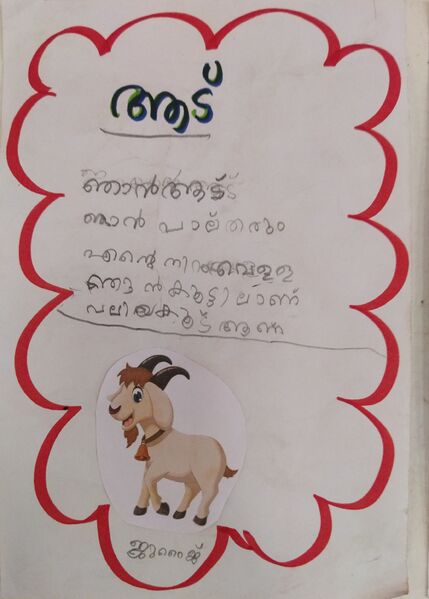 ആട്
ഞാൻ ആട്
ഞാൻ പാല് തരും
എന്റെ നിറം വെള്ള
ഞാൻ കൂട്ടിലാണ്
വലിയകൂട് ആണ